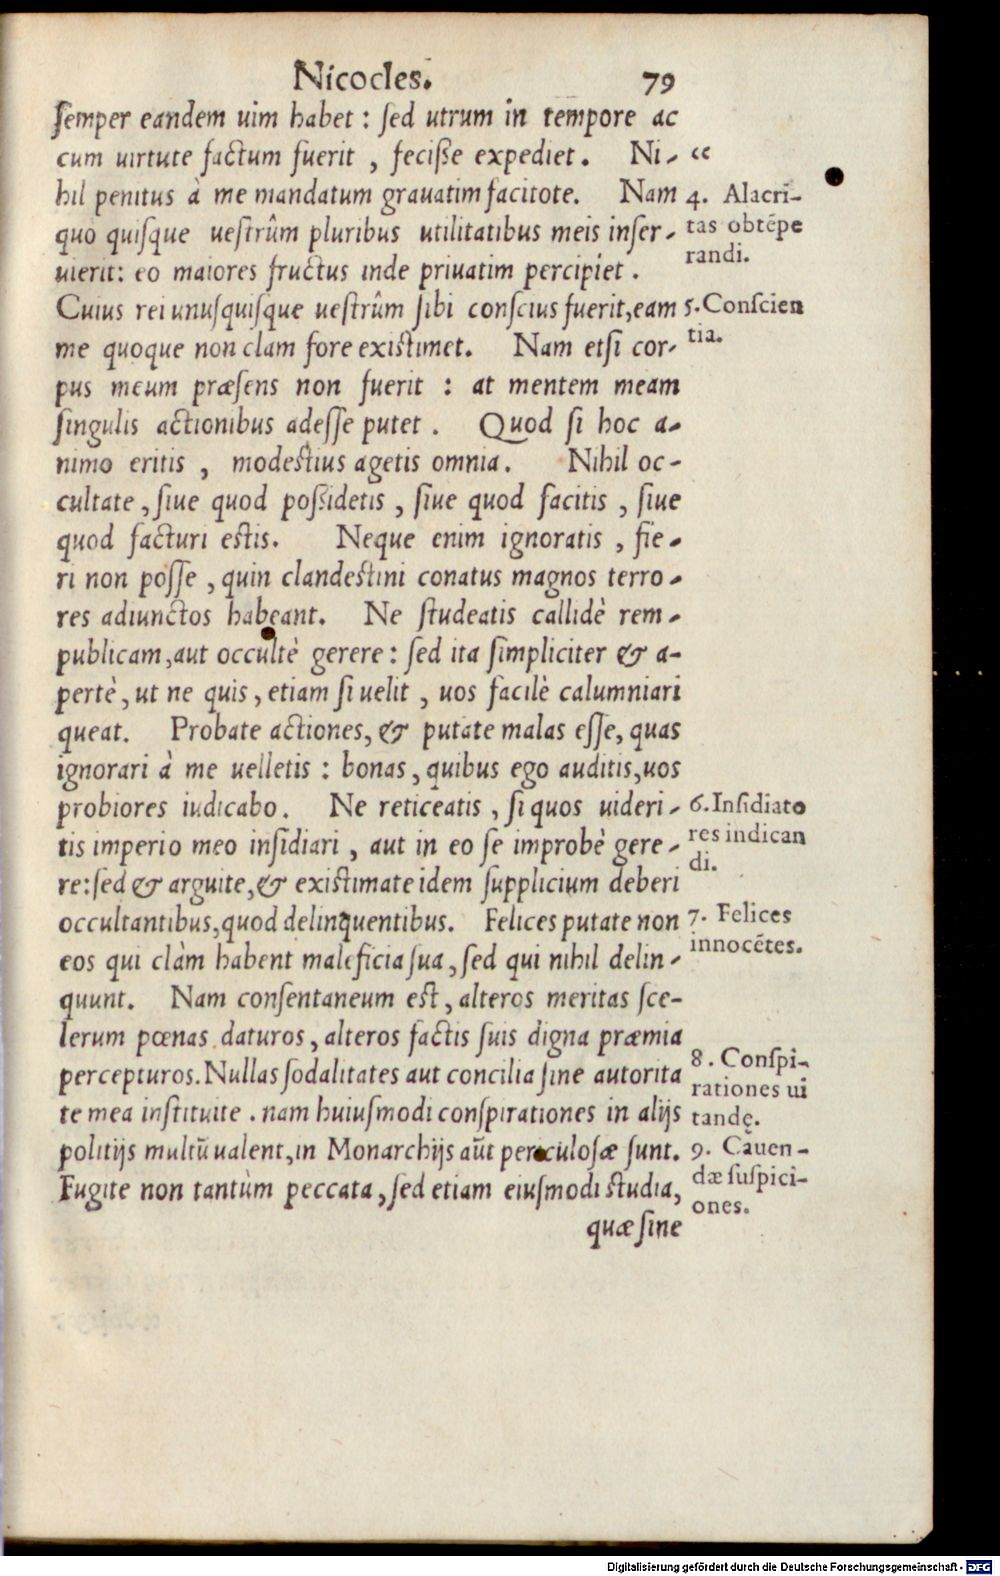 Nicocles. 79
semper eandem uim habet : sed utrum in tempore ac
cum uirtute factum fuerit , fecisse expediet. Ni- “
hil penitus à me mandatum grauatim facitote. Nam
quo quisque uestrûm pluribus utilitatibus meis inser-
uierit: eo maiores fructus inde priuatim percipiet .
Cuius rei unusquisque uestrûm sibi conscius fuerit, eam
me quoque non clam fore existimet. Nam etsi cor-
pus meum præsens non fuerit : at mentem meam
singulis actionibus adesse putet . Quod si hoc a-
nimo eritis , modestius agetis omnia. Nihil oc-
cultate, siue quod possidetis , siue quod facitis , siue
quod facturi estis. Neque enim ignoratis , fie-
ri non posse , quin clandestini conatus magnos terro-
res adiunctos habeant. Ne studeatis callidè rem-
publicam, aut occultè gerere : sed ita simpliciter & a-
pertè, ut ne quis, etiam si uelit , uos facilè calumniari
queat. Probate actiones, & putate malas esse, quas
ignorari à me uelletis : bonas, quibus ego auditis, uos
probiores iudicabo. Ne reticeatis, si quos uideri-
tis imperio meo insidiari , aut in eo se improbè gere-
re: sed & arguite, & existimate idem supplicium deberi
occultantibus, quod delinquentibus. Felices putate non
eos qui clàm habent maleficia sua, sed qui nihil delin-
quunt. Nam consentaneum est, alteros meritas sce-
lerum pœnas daturos, alteros factis suis digna præmia
percepturos. Nullas sodalitates aut concilia sine autorita
te mea instituite . nam huiusmodi conspirationes in alijs
politijs multū ualent, in Monarchijs aūt periculosæ sunt.
Fugite non tantùm peccata, sed etiam eiusmodi studia,
quæ sine
4. Alacri-
tas obtēpe
randi.
5. Conscien
tia.
6. Insidiato
res indican
di.
7. Felices
innocētes.
8. Conspi-
rationes ui
tandę.
9. Cauen-
dæ suspici-
ones.
Digitalisierung gefördert durch die Deutsche Forschungsgemeinschaft - DFG